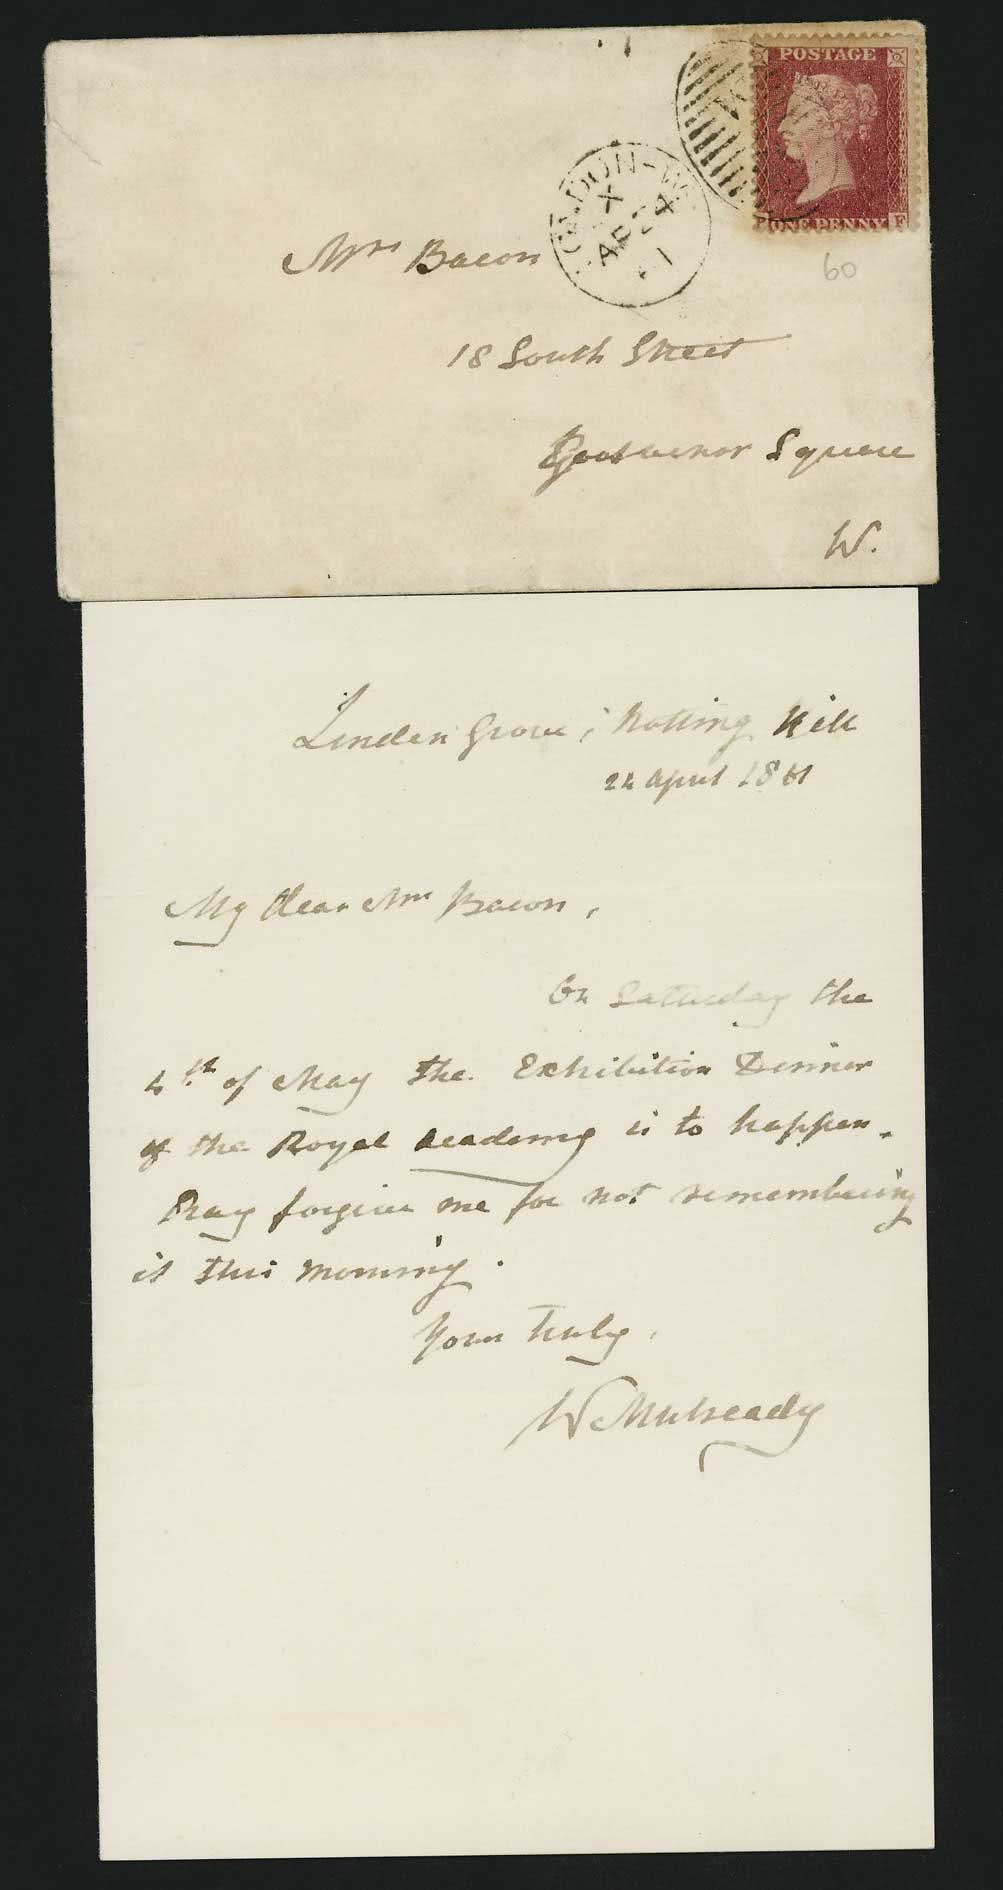 POSTAGE
ONE PENNY
P F
LONDON-W
X
AP 24
61
60
Mrs Bacon
18 South Street
Grosvenor Square
W.
Linden Grove, Notting Hill
24 April 1861
My dear Mrs Bacon,
On Saturday the
4th of May the Exhibition Dinner
of the Royal Academy is to happen.
Pray forgive me for not remembering
it this morning.
Yours truly,
W Mulready